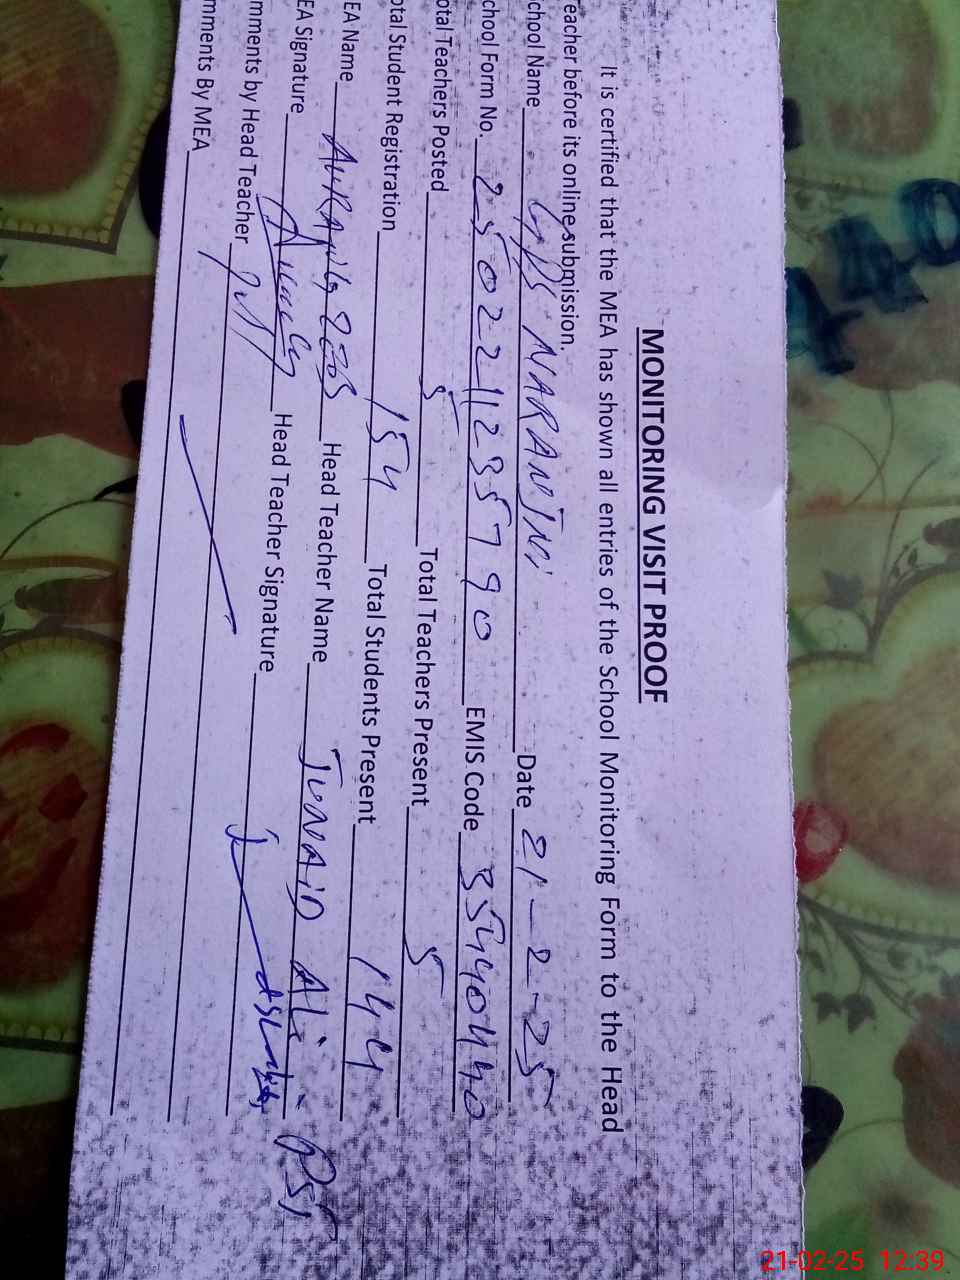 MONITORING VISIT PROOF
It is certified that the MEA has shown all entries of the School Monitoring Form to the Head
eacher before its online submission.
chool Name GPS NARANJNI Date 21-2-25
chool Form No. 250221123579 0 EMIS Code 35440440
otal Teachers Posted 5 Total Teachers Present 5
otal Student Registration 154 Total Students Present 144
EA Name Head Teacher Name JUNAID ALi - PST
EA Signature Head Teacher Signature
mments by Head Teacher
mments By MEA
440
21-02-25 12:39